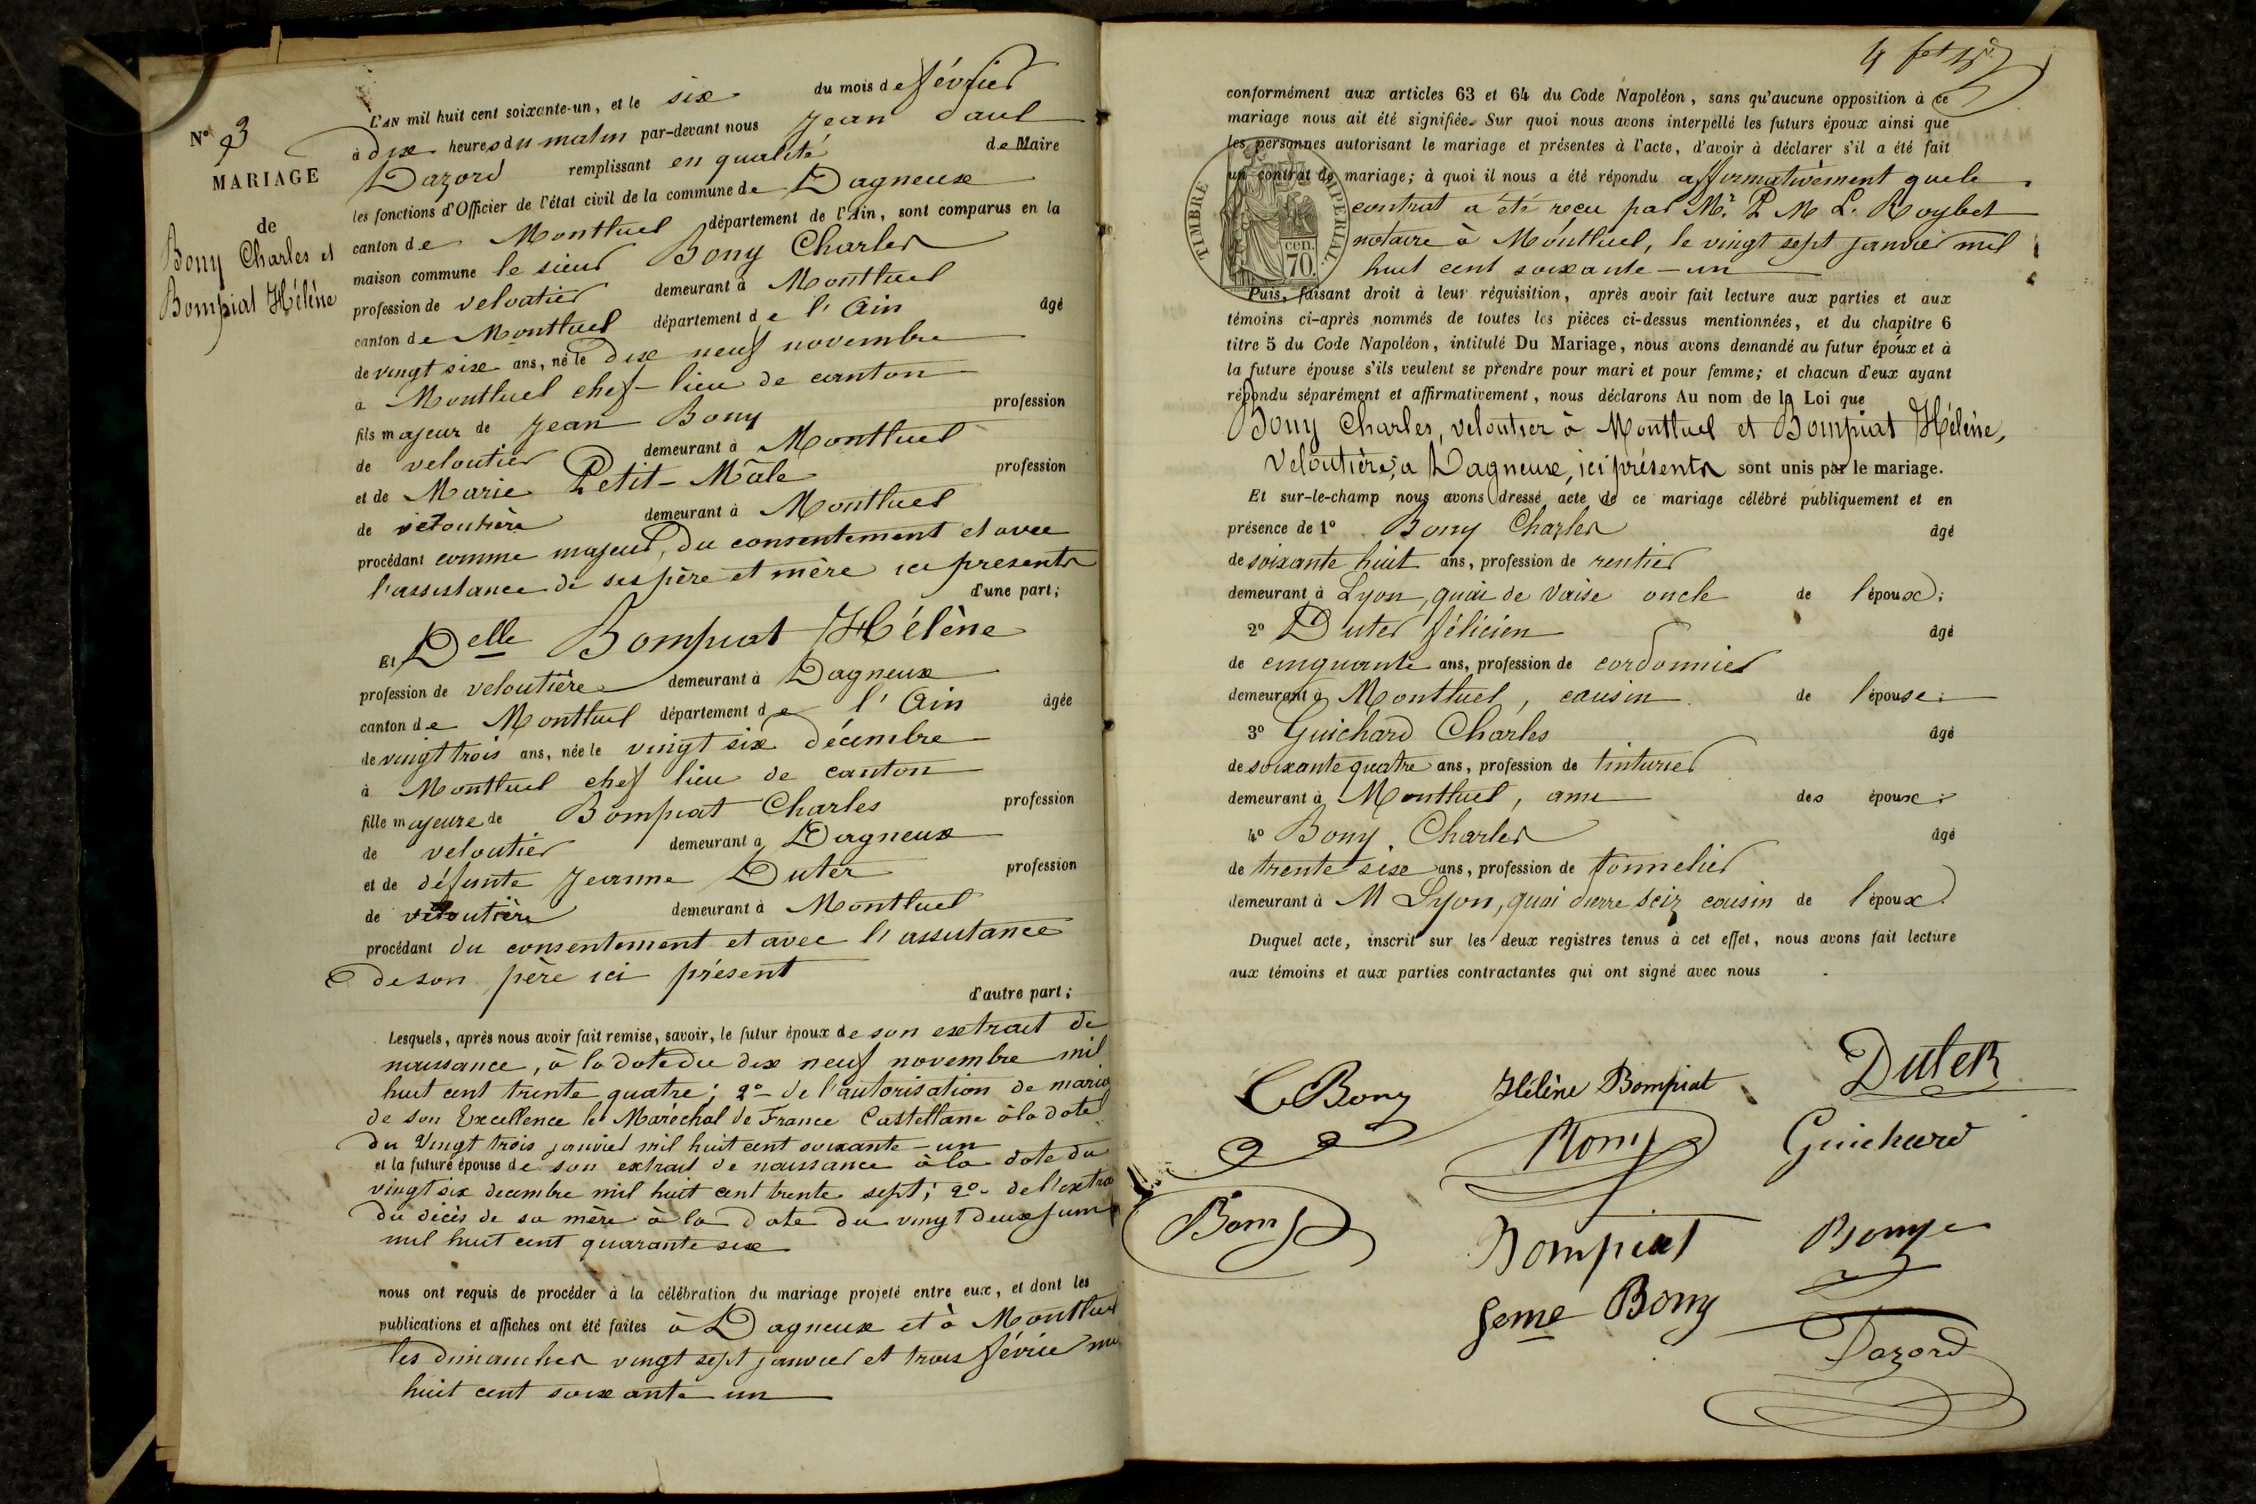 N° 3
MARIAGE
de
Bony Charles et
Bompiat Hélène
L'AN mil huit cent soixante-un, et le six du mois de février
à dix heures du matin par-devant nous Jean Paul
Dazord remplissant en qualité de Maire
les fonctions d'Officier de l'état civil de la commune de Dagneux
canton de Montluel département de l'Ain, sont comparus en la
maison commune le sieur Bony Charles
profession de veloutier demeurant à Montluel
canton de Montluel département de l'Ain âgé
de vingt six ans, né le dix neuf novembre
à Montluel chef-lieu de canton
fils majeur de Jean Bony profession
de veloutier demeurant à Montluel
et de Marie Petit-Mâle profession
de veloutière demeurant à Montluel
procédant comme majeur, du consentement et avec
l'assistance de ses père et mère ici présents
d'une part;
Et Delle Bompiat Hélène
profession de veloutière demeurant à Dagneux
canton de Montluel département de l'Ain âgée
de vingt trois ans, née le vingt six décembre
à Montluel chef lieu de canton
fille majeure de Bompiat Charles profession
de veloutier demeurant à Dagneux
et de défunte Jeanne Duter profession
de veloutière demeurant à Montluel
procédant du consentement et avec l'assistance
de son père ici présent
d'autre part;
Lesquels, après nous avoir fait remise, savoir, le futur époux de son extrait de
naissance, à la date du dix neuf novembre mil
huit cent trente quatre; 2° de l'autorisation de mariag
de son Excellence le Maréchal de France Castellane à la date
du Vingt trois janvier mil huit cent soixante-un
et la future épouse de son extrait de naissance à la date du
vingt six decembre mil huit cent trente sept; 2° de l'extra
du décès de sa mère à la date du vingt deux juin
mil huit cent quarante six
nous ont requis de procéder à la célébration du mariage projeté entre eux, et dont les
publications et affiches ont été faites à Dagneux et à Montluel
les dimanches vingt sept janvier et trois février mil
huit cent soixante un
conformément aux articles 63 et 64 du Code Napoléon, sans qu'aucune opposition à ce
mariage nous ait été signifiée. Sur quoi nous avons interpellé les futurs époux ainsi que
les personnes autorisant le mariage et présentes à l'acte, d'avoir à déclarer s'il a été fait
un contrat de mariage; à quoi il nous a été répondu affirmativement que le
contrat a été reçu par Mr. P. M. L. Roybet
notaire à Montluel, le vingt sept janvier mil
huit cent soixante-un
TIMBRE IMPERIAL
70 cen.
Puis, faisant droit à leur réquisition, après avoir fait lecture aux parties et aux
témoins ci-après nommés de toutes les pièces ci-dessus mentionnées, et du chapitre 6
titre 5 du Code Napoléon, intitulé Du Mariage, nous avons demandé au futur époux et à
la future épouse s'ils veulent se prendre pour mari et pour femme; et chacun d'eux ayant
répondu séparément et affirmativement, nous déclarons Au nom de la Loi que
Bony Charles, veloutier à Montluel et Bompiat Hélène,
Veloutière, à Dagneux, ici présents sont unis par le mariage.
Et sur-le-champ nous avons dressé acte de ce mariage célébré publiquement et en
présence de 1° Bony Charles âgé
de soixante huit ans, profession de rentier
demeurant à Lyon, quai de Vaise oncle de l'époux;
2° Duter félicien âgé
de cinquante ans, profession de cordonnier
demeurant à Montluel, cousin de l'épouse;
3° Guichard Charles âgé
de soixante quatre ans, profession de tinturier
demeurant à Montluel, ami des époux;
4° Bony Charles âgé
de trente six ans, profession de tonnelier
demeurant à M Lyon, quai pierre sciz cousin de l'époux
Duquel acte, inscrit sur les deux registres tenus à cet effet, nous avons fait lecture
aux témoins et aux parties contractantes qui ont signé avec nous
C Bony Hélène Bompiat Duter
Bony Guichard
Bony Bompiat Bony
feme Bony
Dazord